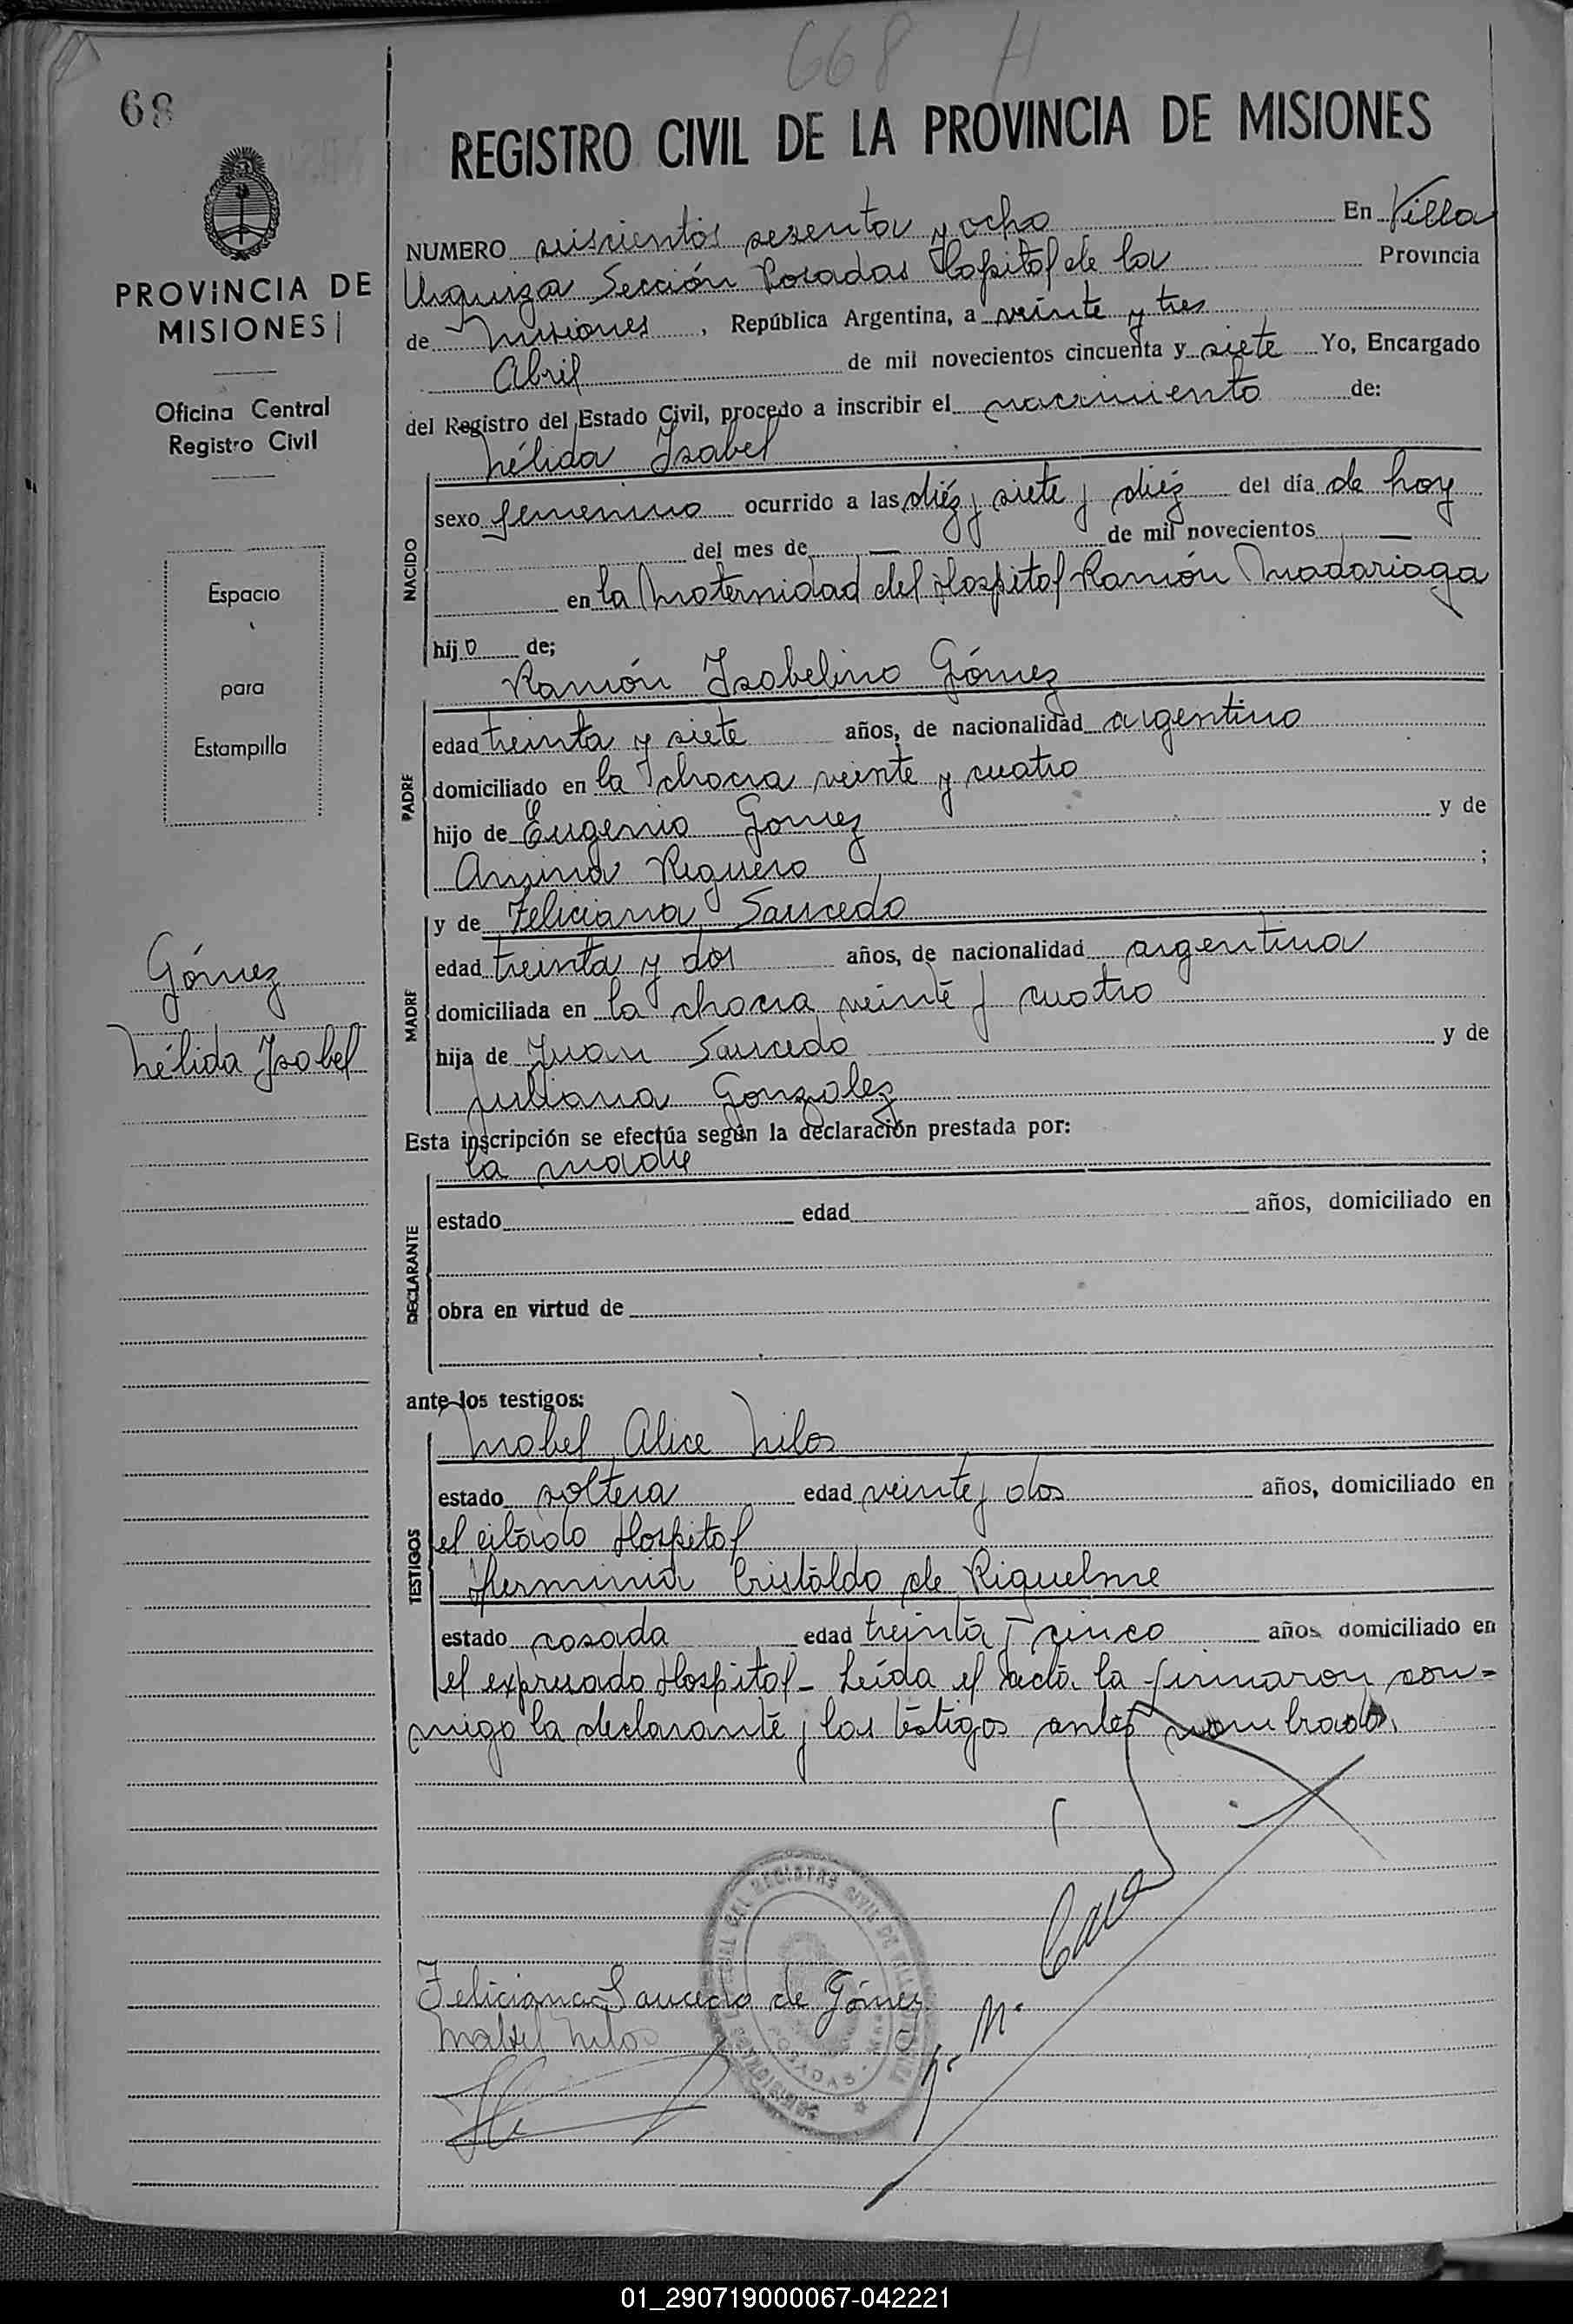 668 H
68
REGISTRO CIVIL DE LA PROVINCIA DE MISIONES
PROVINCIA DE
MISIONES
Oficina Central
Registro Civil
Espacio
para
Estampilla
Gómez
Nélida Isabel
NUMERO seiscientos sesenta y ocho En Villa
Urquiza Sección Posadas Hospital de la Provincia
de Misiones, República Argentina, a veinte y tres
Abril de mil novecientos cincuenta y siete Yo, Encargado
del Registro del Estado Civil, procedo a inscribir el nacimiento de:
Nélida Isabel
NACIDO
sexo femenino ocurrido a las diéz y siete y diéz del día de hoy
del mes de — de mil novecientos —
en la Maternidad del Hospital Ramón Madariaga
hijo de;
Ramón Isabelino Gómez
PADRE
edad treinta y siete años, de nacionalidad argentino
domiciliado en la chacra veinte y cuatro
hijo de Eugenio Gomez y de
Reguero ;
MADRE
y de Feliciana Saucedo
edad treinta y dos años, de nacionalidad argentina
domiciliada en la chacra veinte y cuatro
hija de Juan Saucedo y de
Juliana Gonzalez
Esta inscripción se efectúa según la declaración prestada por:
la madre
DECLARANTE
estado edad años, domiciliado en
obra en virtud de
ante los testigos:
Mabel Alice Nilos
TESTIGOS
estado soltera edad veinte y dos años, domiciliado en
el citado Hospital
Herminia Cristaldo de Riquelme
estado casada edad treinta y cinco años domiciliado en
el expresado Hospital - Leída el acta la firmaron con=
migo la declarante y los testigos antes nombrados.
Feliciana Saucedo de Gómez
Mabel Nilos
POSADAS
01_290719000067-042221